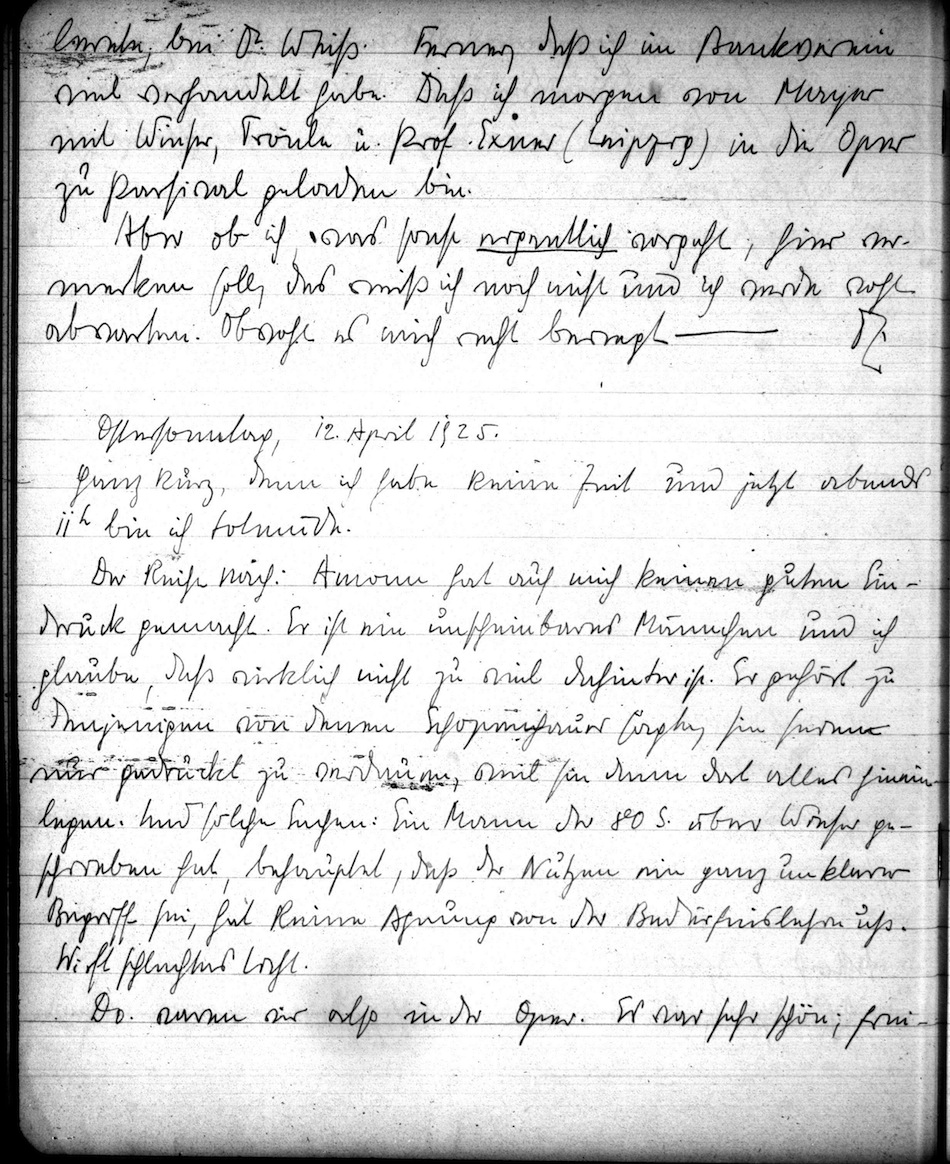 bei Dr. Weiß. Ferner, daß ich im Bankverein
viel verhandelt habe. Daß ich morgen von Mayer
mit Wieser, Fräulein u. Prof. Exner (Leipzig) in die Oper
zu Parsival geladen bin.
Aber ob ich, was sonst eigentlich vorgeht, hier ver-
merken soll, das weiß ich noch nicht und ich werde wohl
abwarten. Obwohl es mich recht bewegt ———
Ostersonntag, 12. April 1925.
Ganz kurz, denn ich habe keine Zeit und jetzt abends
11h bin ich totmüde.
Der Reihe nach: Amonn hat auf mich keinen guten Ein-
druck gemacht. Er ist ein unscheinbares Männchen und ich
glaube, daß wirklich nicht zu viel dahinter ist. Er gehört zu
denjenigen von denen Schopenhauer sagte, sie seien
nur gedruckt zu verdauen, weil sie denn dort alles hinein-
legen. Und solche Sachen: Ein Mann der 80 S. über Wieser ge-
schrieben hat, behauptet, daß der Nutzen ein ganz unklarer
Begriff sei, hat keine Ahnung von der Bedürfnislehre usf.
Wirft schlechtes Licht.
Do. waren wir also in der Oper. Es war sehr schön; frei-